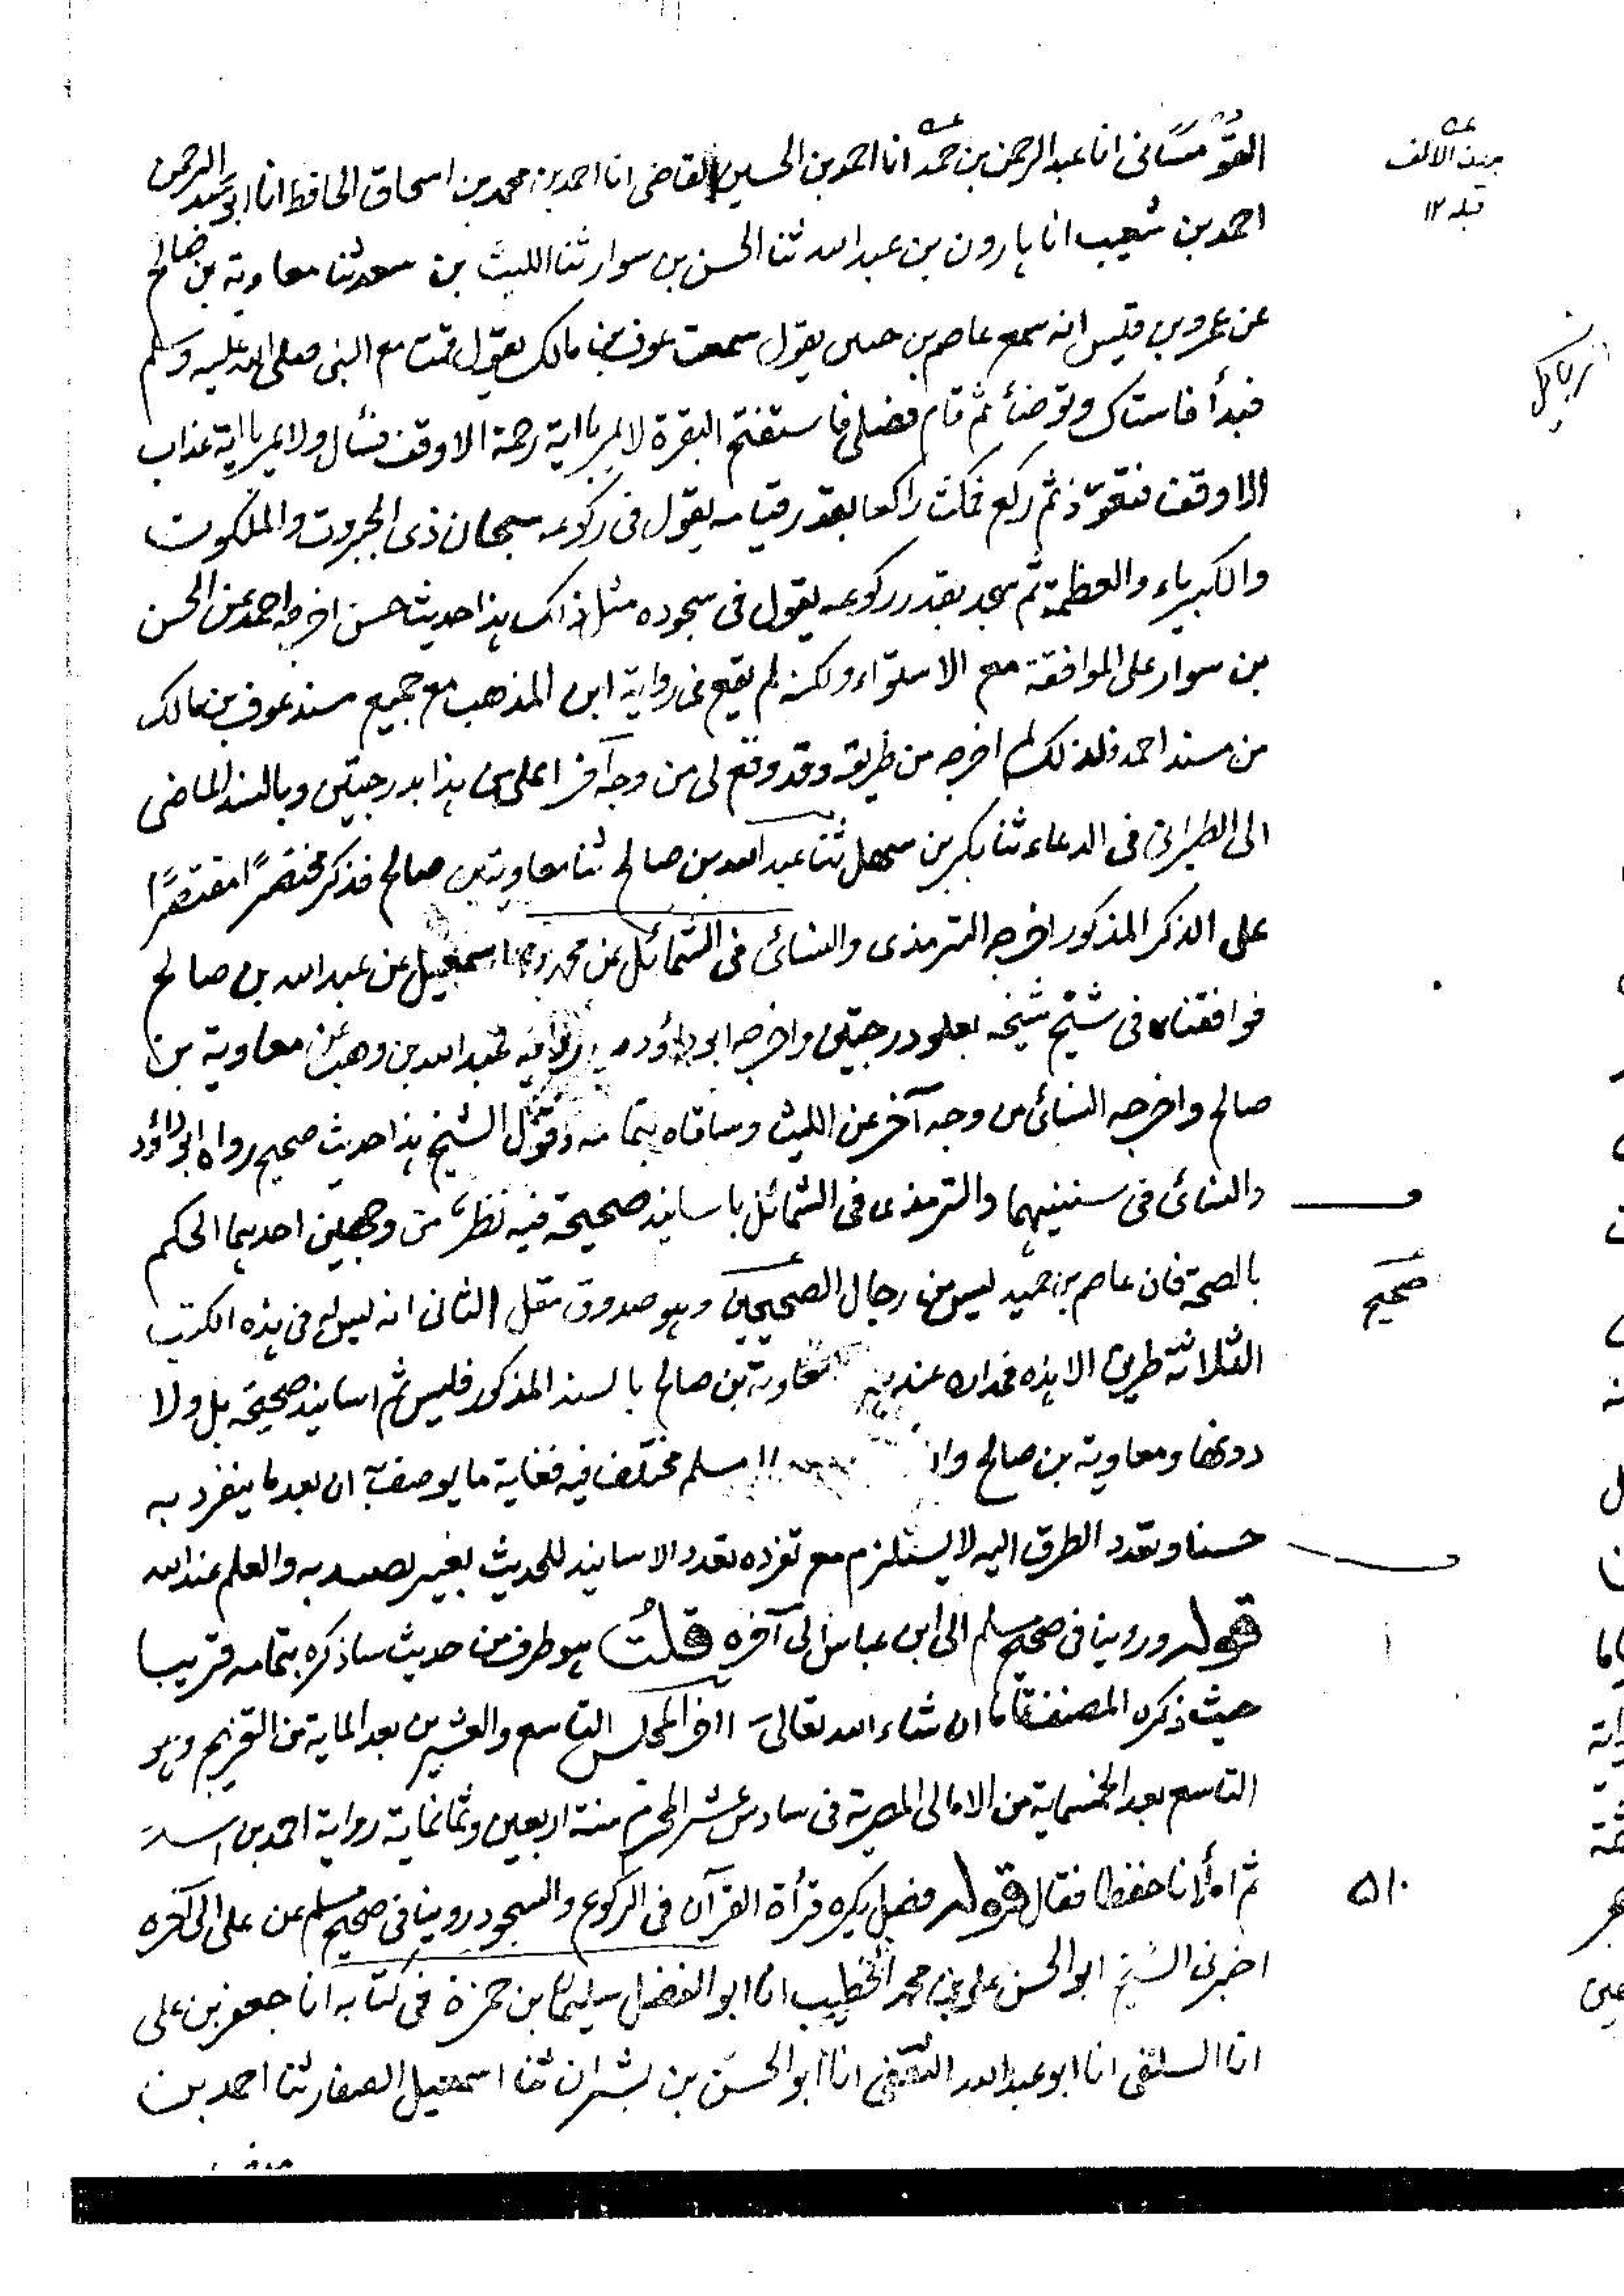 القُوْمَسَانی انا عبد الرحمن بن حمد انا احمد بن الحسین القاضی انا احمد بن محمد بن اسحاق الحافظ انا ابو عبد الرحمن
احمد بن شعیب انا ہارون بن عبد اللہ ثنا الحسن بن سوار ثنا اللیث بن سعد ثنا معاویة بن صالح
عن عمرو بن قیس انہ سمع عاصم بن حمید یقول سمعت عوف بن مالک یقول قمت مع النبی صلی اللہ علیہ وسلم
فبدأ فاستاک وتوضأ ثم قام فصلی فاستفتح البقرة لا یمر بایة رحمة الا وقف فسأل ولا یمر بایة عذاب
الا وقف فتعوّذ ثم رکع فمکث راکعا بقدر قیامہ یقول فی رکوعہ سبحان ذی الجبروت والملکوت
والکبریاء والعظمة ثم سجد بقدر رکوعہ یقول فی سجودہ مثل ذالک ہذا حدیث حسن اخرجہ احمد عن الحسن
بن سوار علی الموافقة مع الاستواء ولکنہ لم یقع فی روایة ابن المذهب مع جمیع مسند عوف بن مالک
من مسند احمد فلذلک لم اخرجہ من طریقہ وقد وقع لی من وجہ آخر اعلی من ہذا بدرجتین وبالسند الماضی
الی الطبرانی فی الدعاء ثنا بکر بن سهل ثنا عبد اللہ بن صالح ثنا معاویة بن صالح فذکر مختصرًا مقتصرًا
علی الذکر المذکور اخرجہ الترمذی والنسائی فی الشمائل عن محمد بن اسمعیل عن عبد اللہ بن صالح
فوافقناہ فی شیخ شیخہ بعلو درجتین واخرجہ ابو داؤد من روایة عبد اللہ بن وهب عن معاویة بن
صالح واخرجہ النسائی من وجہ آخر عن اللیث وساقاہ بتمامہ وقول الشیخ ہذا حدیث صحیح رواہ ابو داؤد
والنسائی فی سننیہما والترمذی فی الشمائل باسانید صحیحة فیہ نظر من وجهین احدہما الحکم
بالصحة فان عاصم بن حمید لیس من رجال الصحیحین وہو صدوق مقل الثانی انہ لیس لہ فی ہذہ الکتب
الثلاثة طریق الا ہذہ فمدارہ عندہم معاویة بن صالح بالسند المذکور فلیس ثم اسانید صحیحة بل ولا
دونها ومعاویة بن صالح وان مسلم مختلف فیہ فغایة ما یوصف بہ ان یعد ما ینفرد بہ
حسنا وتعدد الطرق الیہ لا یستلزم مع تفردہ تعدد الاسانید للحدیث بغیر والعلم عند اللہ
قولہ وروینا فی صحیح مسلم الی ابن عباس الی آخرہ قلتُ ہو طرف من حدیث ساذکرہ بتمامہ قریبا
حیث ذکرہ المصنف ان شاء اللہ تعالی اٰخر المجلس التاسع والعشرین بعد المایة من التخریج وہو
التاسع بعد الخمسمایة من الامالی المصریة فی سادس عشر المحرم سنة اربعین وثمانمایة روایة احمد بن
ثم املانا حفظا فقال قولہ فصل یکرہ قرأة القرآن فی الرکوع والسجود روینا فی صحیح مسلم عن علی الی آخرہ
اخبرنی الشیخ ابو الحسن علی بن محمد الخطیب انا ابو الفضل سلیمان بن حمزة فی کتابہ انا جعفر بن علی
انا السلفی انا ابو عبد اللہ الثقفی انا ابو الحسن بن بشران ثنا اسمعیل الصفار ثنا احمد بن
قبلہ ۱۲
صحیح
۵۱۰